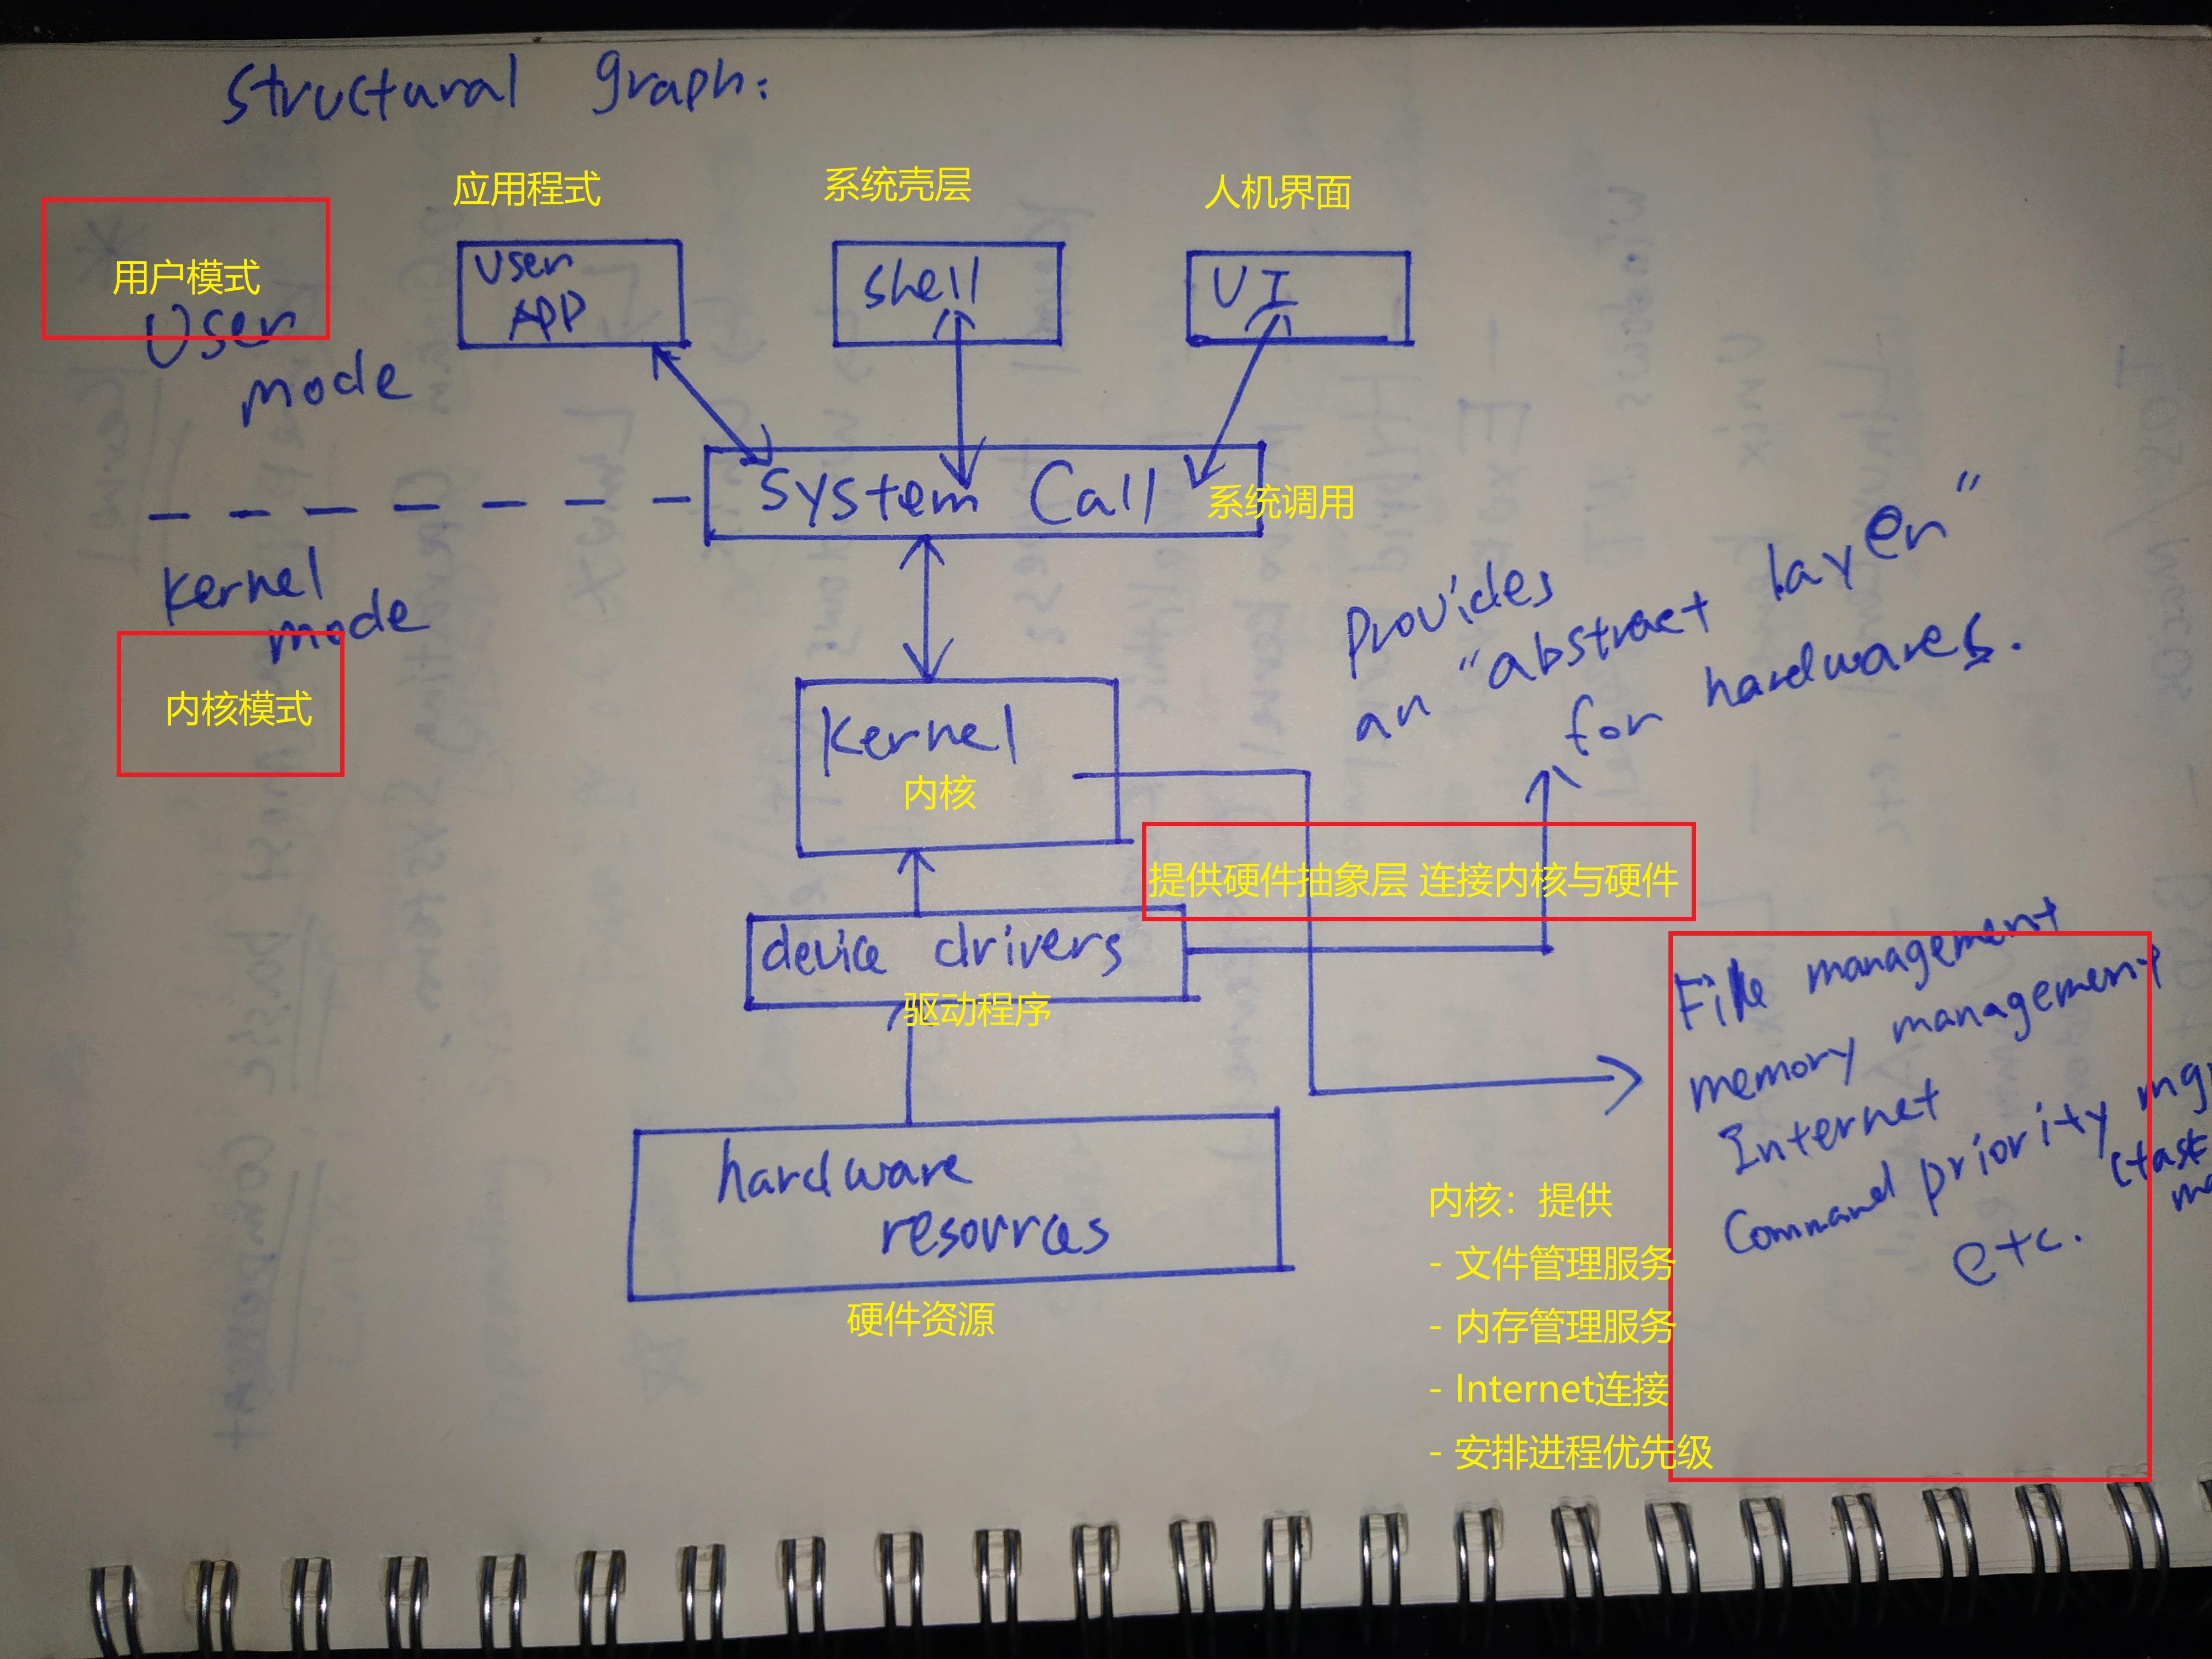 Structural graph:
应用程式
系统壳层
人机界面
用户模式
User
mode
User
APP
shell
UI
System Call
系统调用
kernel
mode
内核模式
provides
an "abstract layer"
for hardwares.
kernel
内核
提供硬件抽象层 连接内核与硬件
device drivers
驱动程序
File management
memory management
Internet
Command priority
(task
etc.
hardware
resources
硬件资源
内核：提供
- 文件管理服务
- 内存管理服务
- Internet连接
- 安排进程优先级